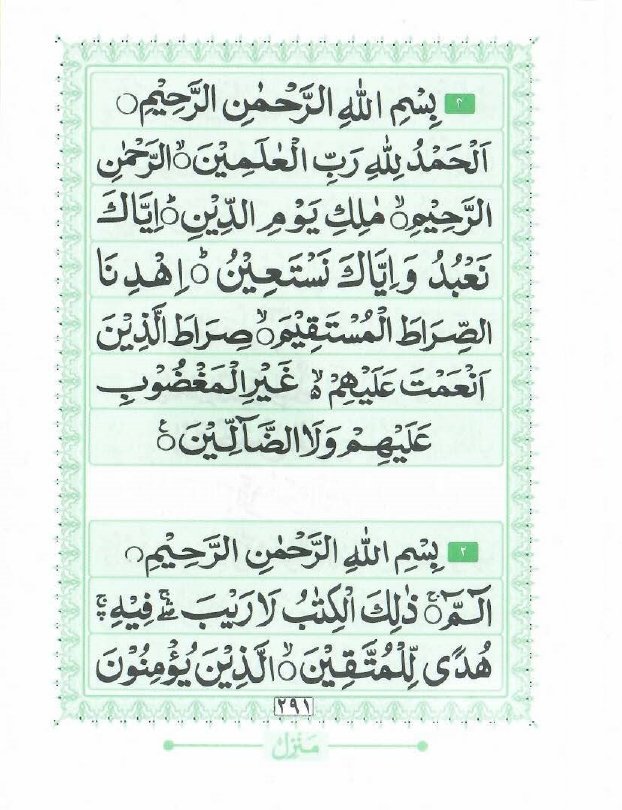 ۳ بِسْمِ اللّٰهِ الرَّحْمٰنِ الرَّحِيْمِ○
اَلْحَمْدُ لِلّٰهِ رَبِّ الْعٰلَمِيْنَ○ۙ الرَّحْمٰنِ
الرَّحِيْمِ○ۙ مٰلِكِ يَوْمِ الدِّيْنِ○ؕ اِيَّاكَ
نَعْبُدُ وَاِيَّاكَ نَسْتَعِيْنُ○ؕ اِهْدِنَا
الصِّرَاطَ الْمُسْتَقِيْمَ○ۙ صِرَاطَ الَّذِيْنَ
اَنْعَمْتَ عَلَيْهِمْ ۙ۬ غَيْرِ الْمَغْضُوْبِ
عَلَيْهِمْ وَلَا الضَّآلِّيْنَ○ۧ
۲ بِسْمِ اللّٰهِ الرَّحْمٰنِ الرَّحِيْمِ○
الٓمّٓ○ۚ ذٰلِكَ الْكِتٰبُ لَا رَيْبَ ۛۖۚ فِيْهِ ۛۚ
هُدًى لِّلْمُتَّقِيْنَ○ۙ الَّذِيْنَ يُؤْمِنُوْنَ
۲۹۱
مَنْزِل